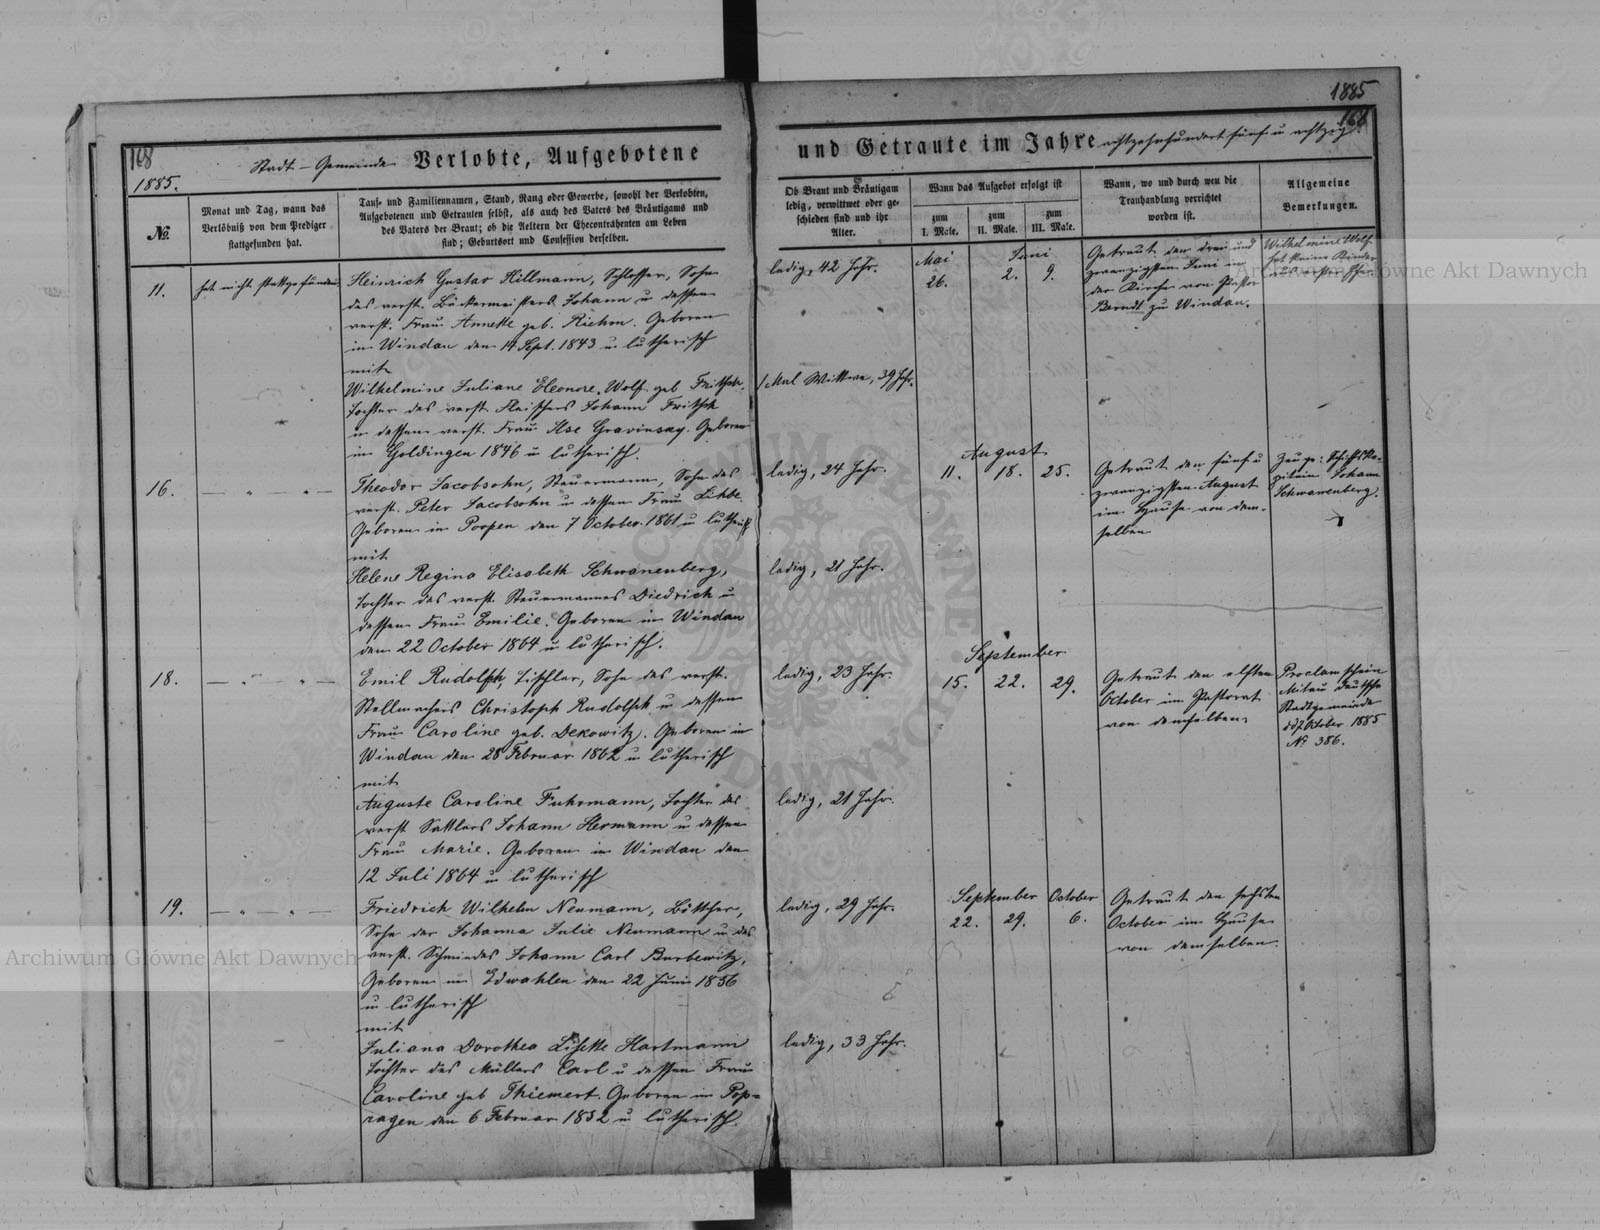 1885
168
168
1885.
Stadt-Gemeinde Verlobte, Aufgebotene
und Getraute im Jahre achtzehnhundert fünf u achtzig.
№.
Monat und Tag, wann das
Verlöbniß von dem Prediger
stattgefunden hat.
Tauf- und Familiennamen, Stand, Rang oder Gewerbe, sowohl der Verlobten,
Aufgebotenen und Getrauten selbst, als auch des Vaters des Bräutigams und
des Vaters der Braut; ob die Aeltern der Ehecontrahenten am Leben
sind; Geburtsort und Confession derselben.
Ob Braut und Bräutigam
ledig, verwittwet oder ge-
schieden sind und ihr
Alter.
Wann das Aufgebot erfolgt ist
zum
I. Male.
zum
II. Male.
zum
III. Male.
Wann, wo und durch wen die
Trauhandlung verrichtet
worden ist.
Allgemeine
Bemerkungen.
11.
hat nicht stattgefunden
Heinrich Gustav Hillmann, Schlosser, Sohn
des verst. Bäckermeisters Johann u dessen
verst. Frau Annette geb. Riehm. Geboren
in Windau den 14 Sept. 1843 u lutherisch
mit
Wilhelmine Juliane Eleonore Wolf geb Fritsch
Tochter des verst. Fleischers Johann Fritsch
u dessen verst. Frau Ilse Gravinsky. Geboren
in Goldingen 1846 u lutherisch.
ledig, 42 Jahr.
1 Mal Wittwe, 39 Jahr.
Mai
26.
Juni
2. 9.
Getraut den drei und
zwanzigsten Juni in
der Kirche von Pastor
Berndt zu Windau.
Wilhelmine Wolf
hat keine Kinder
aus erster Ehe.
16.
— " — " —
Theodor Jacobsohn, Steuermann, Sohn des
verst. Peter Jacobsohn u dessen Frau Lihbe
Geboren in Poopen den 7 October 1861 u lutherisch
mit
Helene Regina Elisabeth Schwanenberg,
Tochter des verst. Steuermannes Diedrich u
dessen Frau Emilie. Geboren in Windau
den 22 October 1864 u lutherisch.
ledig, 24 Jahr.
ledig, 21 Jahr.
August
11. 18. 25.
Getraut den fünf u
zwanzigsten August
im Hause von dem-
selben
Zeuge: Schiffska-
pitain Johann
Schwanenberg.
18.
— " — " —
Emil Rudolph, Tischler, Sohn des verst.
Stellmachers Christoph Rudolph u dessen
Frau Caroline geb. Dekowitz. Geboren in
Windau den 28 Februar 1862 u lutherisch
mit
Auguste Caroline Fuhrmann, Tochter des
verst. Sattlers Johann Hermann u dessen
Frau Marie. Geboren in Windau den
12 Juli 1864 u lutherisch
ledig, 23 Jahr.
ledig, 21 Jahr.
September
15. 22. 29.
Getraut den elften
October im Pastorat
von demselben
Proclamschein
Mitau deutsche
Stadtgemeinde
October 1885
№ 386.
19.
— " — " —
Friedrich Wilhelm Neumann, Böttcher,
Sohn der Johanna Julie Neumann u des
verst. Schmiedes Johann Carl Burbewitz,
Geboren in Edwahlen den 22 Juni 1856
u lutherisch
mit
Juliana Dorothea Lisette Hartmann
Tochter des Müllers Carl u dessen Frau
Caroline geb Thiemert. Geboren in Pop-
ragen den 6 Februar 1852 u lutherisch.
ledig, 29 Jahr.
ledig, 33 Jahr.
September October
22. 29. 6.
Getraut den sechsten
October im Hause
von demselben.
Archiwum Główne Akt Dawnych
Archiwum Główne Akt Dawnych